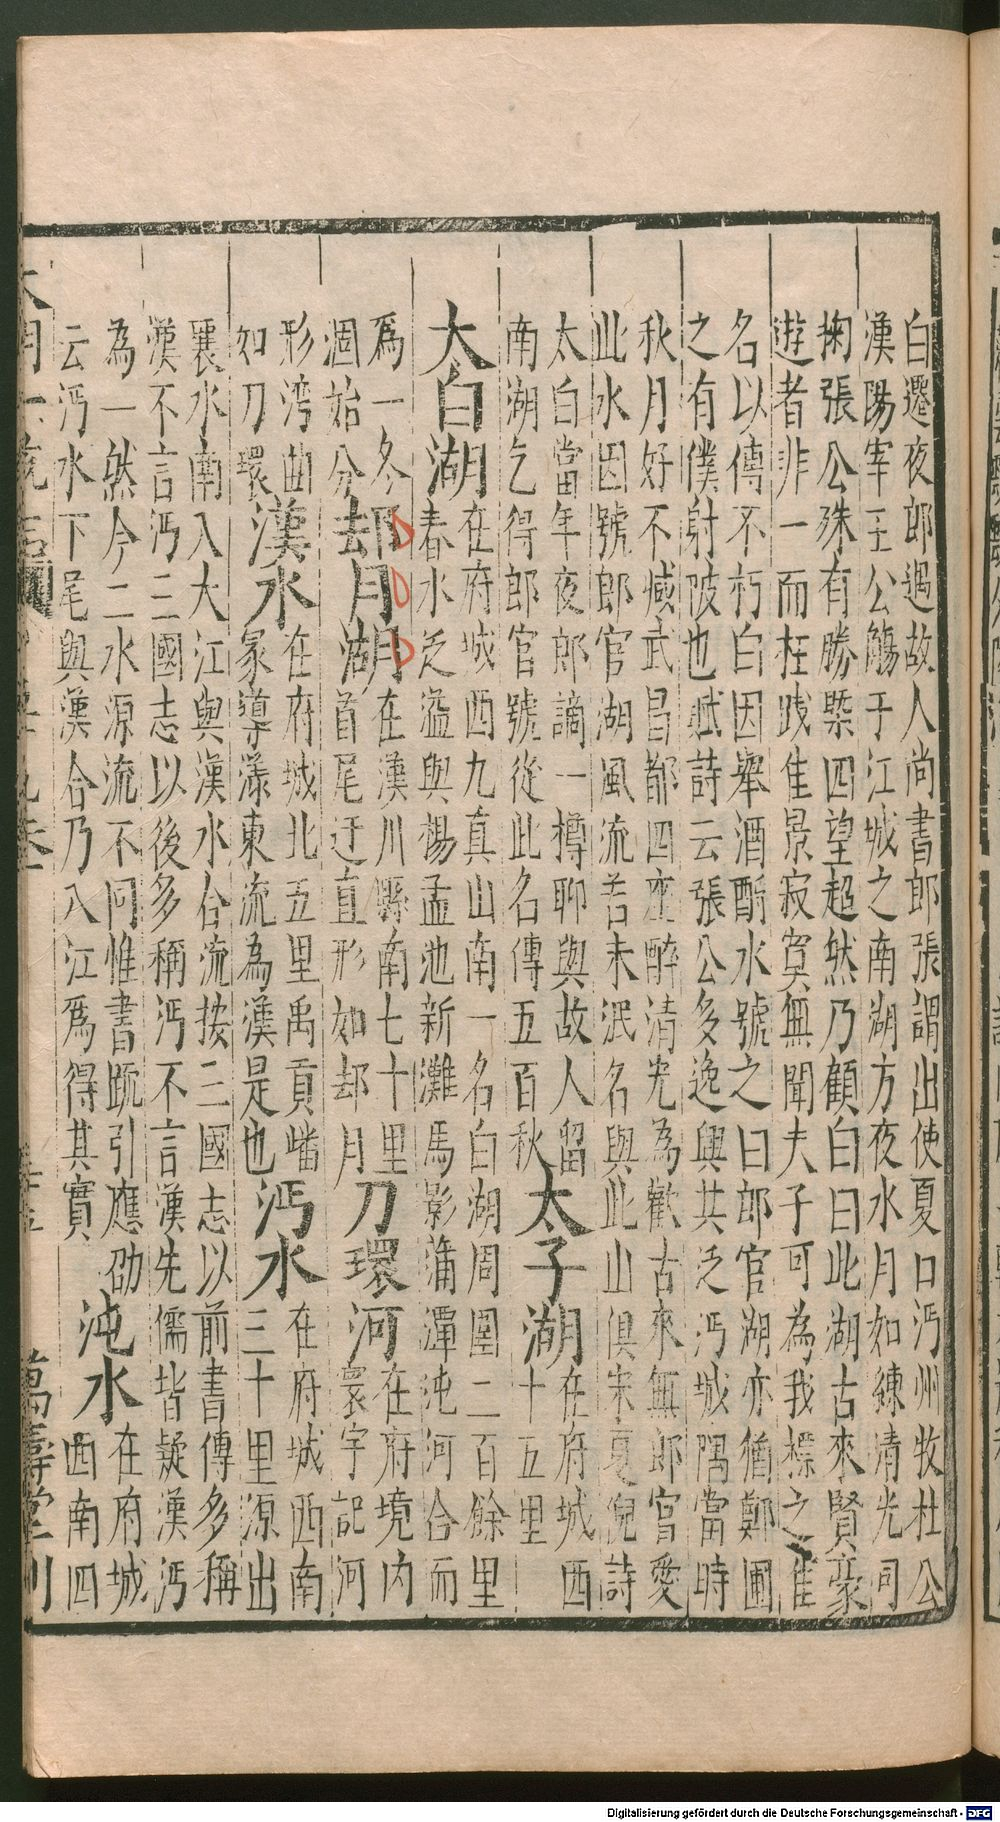 白遷夜郎遇故人尚書郎張謂出使夏口沔州牧杜公
漢陽宰王公觴于江城之南湖方夜水月如練清光可
掬張公殊有勝槩四望超然乃顧白曰此湖古來賢豪
遊者非一而枉踐佳景寂寞無聞夫子可為我標之佳
名以傳不朽白因舉酒酹水號之曰郎官湖亦猶鄭圃
之有僕射陂也賦詩云張公多逸興共泛沔城隅當時
秋月好不減武昌都四座醉清光為歡古來無郎官愛
此水因號郎官湖風流若未泯名與此山俱宋夏倪詩
太白當年夜郎謫一樽聊與故人留
南湖乞得郎官號從此名傳五百秋
太子湖
在府城西
十五里
太白湖
在府城西九真山南一名白湖周圍二百餘里
春水泛溢與楊孟池新灘馬影蒲潭沌河合而
為一冬
涸始分
却月湖
在漢川縣南七十里
首尾迂直形如却月
刀環河
在府境内
寰宇記河
形湾曲
如刀環
漢水
在府城北五里禹貢嶓
冢導漾東流為漢是也
沔水
在府城西南
三十里源出
襄水南入大江與漢水合流按三國志以前書傳多稱
漢不言沔三國志以後多稱沔不言漢先儒皆疑漢沔
為一然今二水源流不同惟書疏引應劭
云沔水下尾與漢合乃入江爲得其實
沌水
在府城
西南四
大明一統志
卷
萬壽堂刊
Digitalisierung gefördert durch die Deutsche Forschungsgemeinschaft - DFG